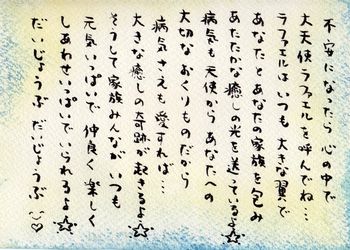 不安になったら 心の中で
大天使ラファエルを呼んでね…
ラファエルはいつも 大きな翼で
あなたとあなたの家族を包み
あたたかな癒しの光を送っているよ☆
病気も天使から あなたへの
大切なおくりものだから
病気さえも愛すれば…
大きな癒しの奇跡が起きるよ☆
そうして家族みんなが いつも
元気いっぱいで 仲良く楽しく
しあわせいっぱいでいられるよ☆
だいじょうぶ だいじょうぶ ♡